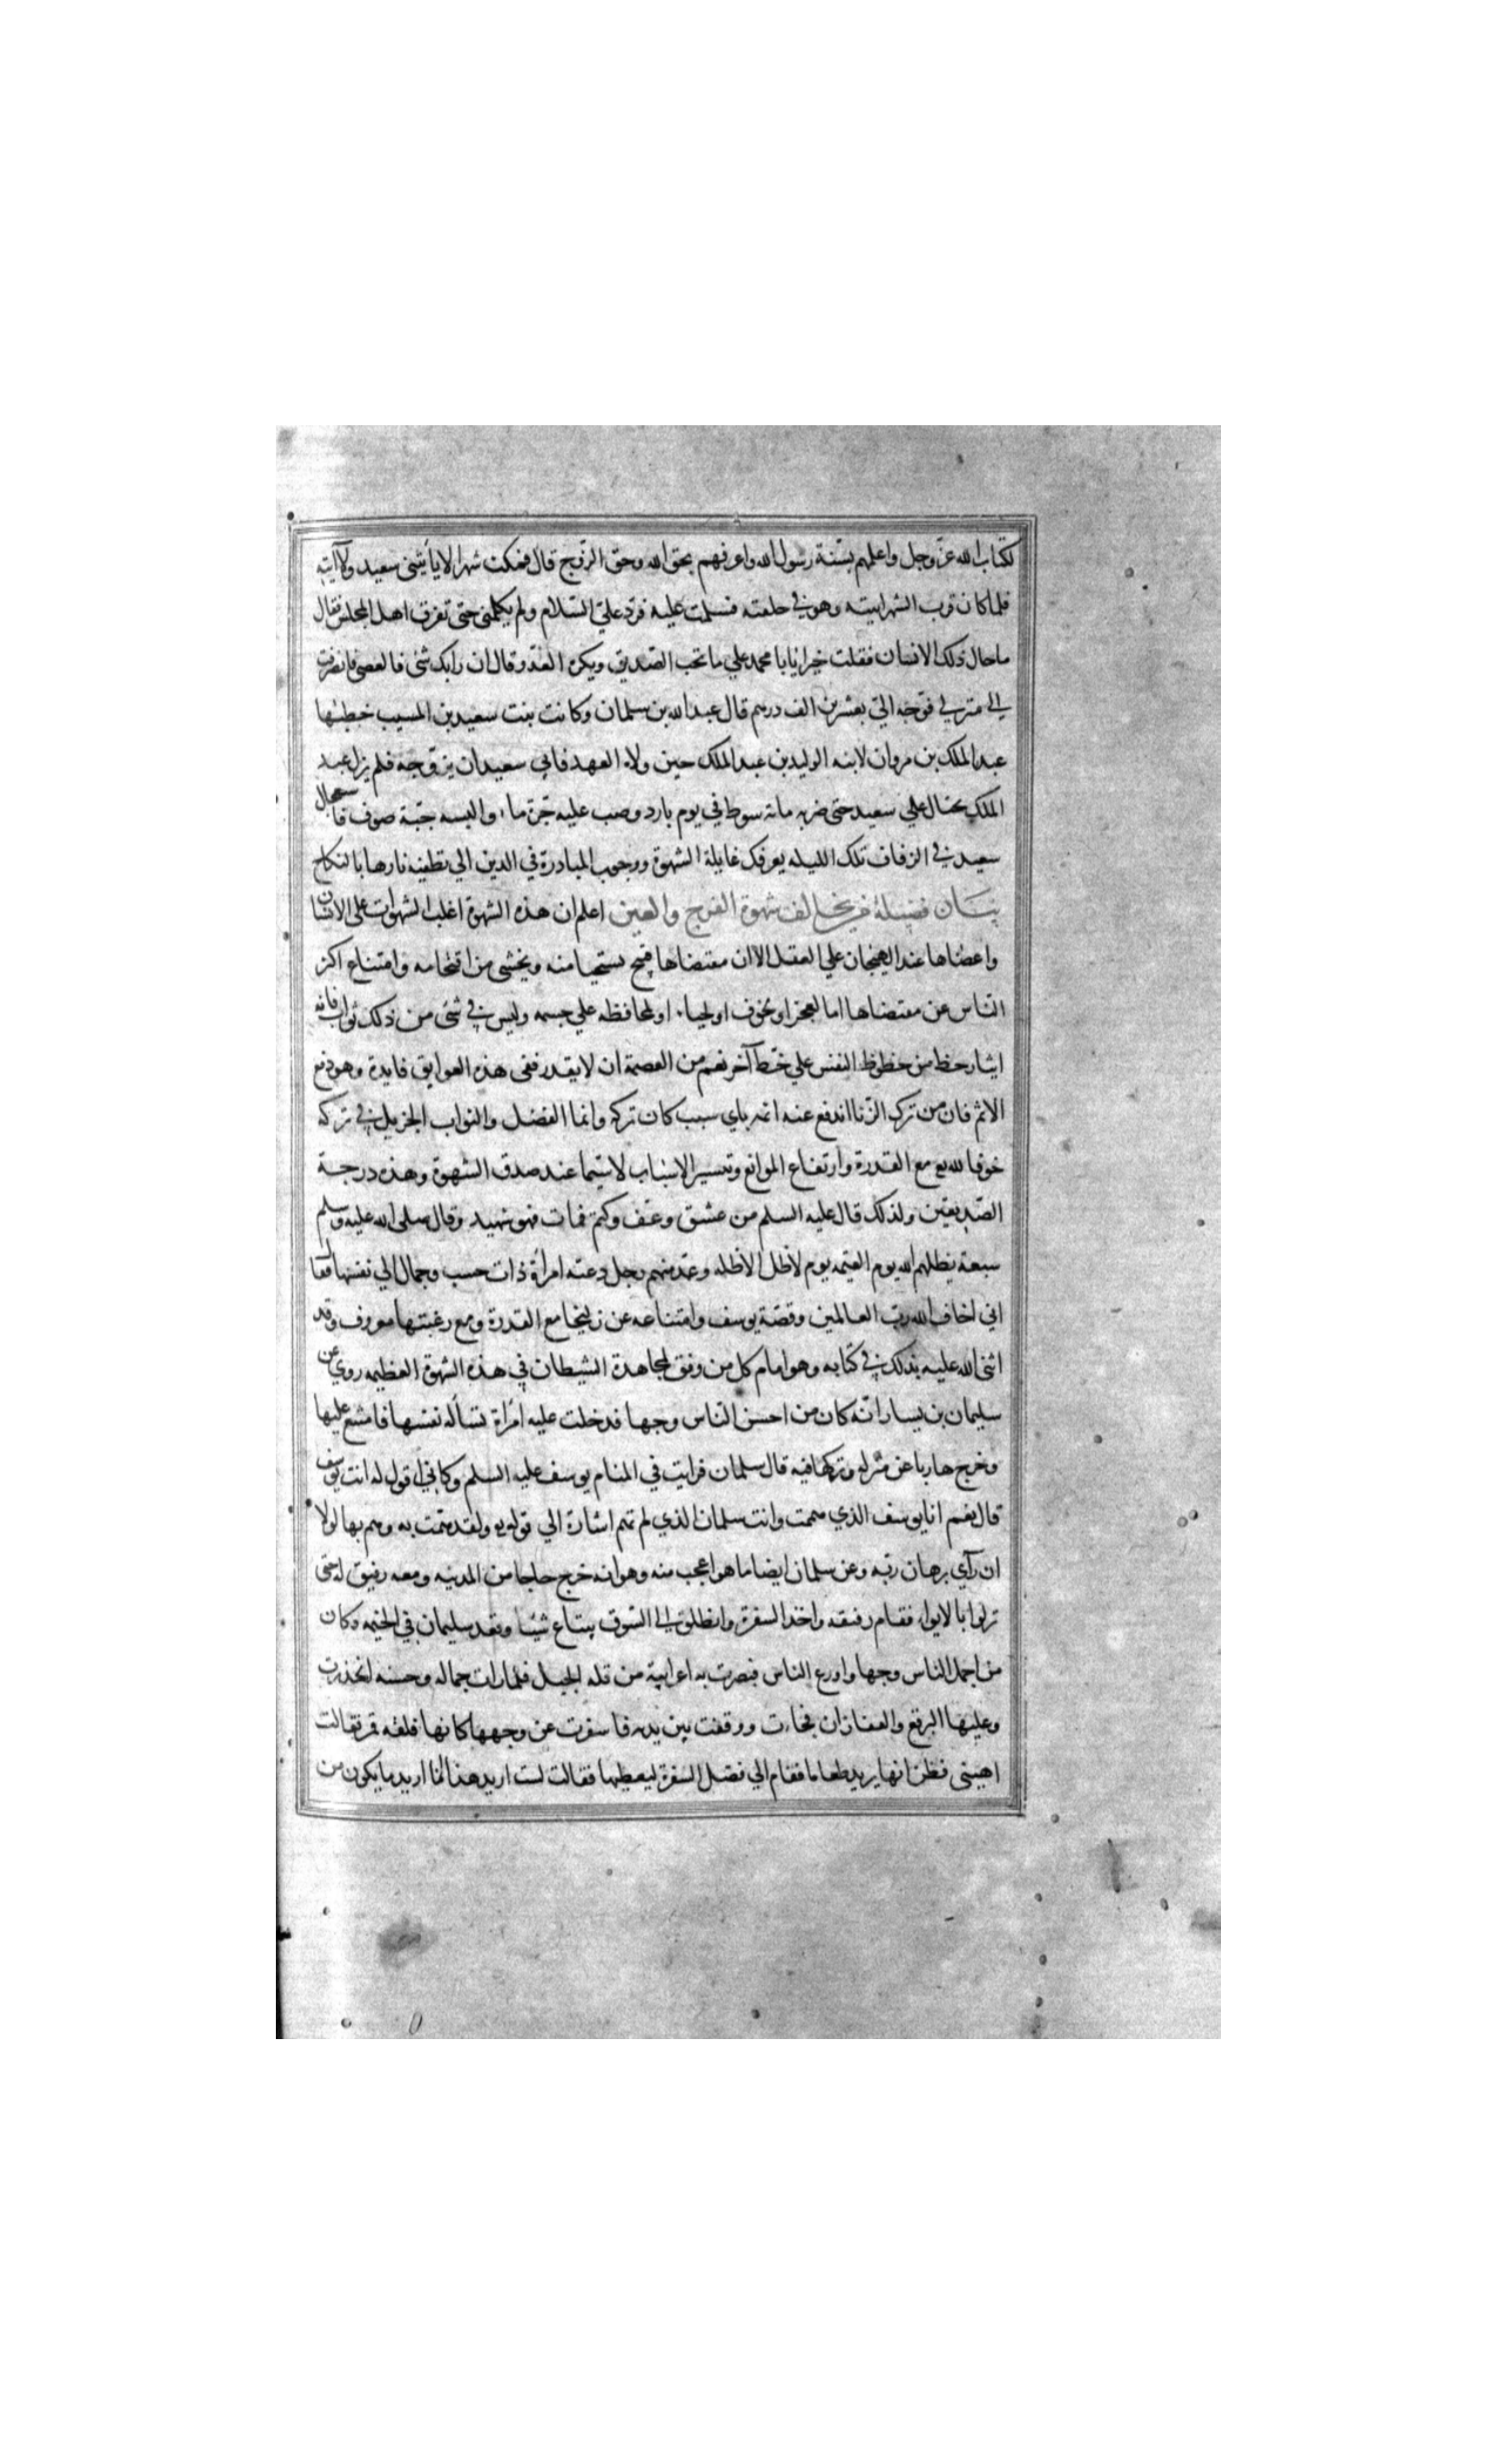 لكتاب الله عز وجل واعلمهم بسنة رسول الله واعرفهم بحق الله وحق الزوج قال فمكث شهرا لا يأتيني سعيد ولا آتيه
فلما كان قرب الشهر اتيته وهو في حلقته فسلمت عليه فرد علي السلام ولم يكلمني حتى تفرق اهل المجلس فقال
ما حال ذلك الانسان فقلت خيرا يابا محمد علي ما تحب الصديق ويكره العدو وقال ان رابك شئ فالعصى فانصرفت
الى منزلي فوجه الي بعشرين الف درهم قال عبد الله بن سلمان وكانت بنت سعيد بن المسيب خطبها
عبد الملك بن مروان لابنه الوليد بن عبد الملك حين ولاه العهد فابي سعيد ان يزوجه فلم يزل عبد
الملك يحتال علي سعيد حتى ضربه مائة سوط في يوم بارد وصب عليه جرة ماء والبسه جبة صوف فاستعجال
سعيد في الزفاف تلك الليله يعرفك غايلة الشهوة ووجوب المبادرة في الدين الي تطفيه نارها بالنكاح
بيان فضيلة من يخالف شهوة الفرج والعين اعلم ان هذه الشهوة اغلب الشهوات على الانسان
واعصاها عند الهيجان علي العقل الا ان مقتضاها قبح يستحيا منه ويخشى من اقتحامه وامتناع اكثر
الناس عن مقتضاها اما لعجز او لخوف او لحياء او لمحافظه علي جسمه وليس في شئ من ذلك ثواب فانه
ايثار حظ من حظوظ النفس علي حظ آخر نعم من العصمة ان لا يقدر ففي هذه العوايق فايدة وهو دفع
الاثم فان من ترك الزنا اندفع عنه اثمه باي سبب كان تركه وانما الفضل والثواب الجزيل في تركه
خوفا لله مع القدرة وارتفاع الموانع وتيسير الاسباب لا سيما عند صدق الشهوة وهذه درجة
الصديقين ولذلك قال عليه السلم من عشق وعف وكتم فمات فهو شهيد وقال صلى الله عليه وسلم
سبعة يظلهم الله يوم القيمه يوم لا ظل الا ظله وعد منهم رجل دعته امرأة ذات حسب وجمال الي نفسها فقال
اني اخاف الله رب العالمين وقصة يوسف وامتناعه عن زليخا مع القدرة ومع رغبتها معروف وقد
اثنى الله عليه بذلك في كتابه وهو امام كل من وفق لمجاهدة الشيطان في هذه الشهوة العظيمه روي عن
سليمان بن يسار انه كان من احسن الناس وجها فدخلت عليه امرأة تسأله نفسها فامتنع عليها
وخرج هاربا عن منزله وتركها فيه قال سلمان فرايت في المنام يوسف عليه السلم وكاني اقول له انت يوسف
قال نعم انا يوسف الذي هممت وانت سلمان الذي لم تهم اشارة الي قوله ولقد همت به وهم بها لولا
ان رآي برهان ربه وعن سلمان ايضا ما هو اعجب منه وهو انه خرج حاجا من المدينه ومعه رفيق له حتى
نزلوا بالابواء فقام رفيقه واخذ السفرة وانطلق الى السوق يبتاع شيئا وقعد سليمان في الخيمه وكان
من اجمل الناس وجها واورع الناس فبصرت به اعرابية من قله الجبل فلما رات جماله وحسنه انحدرت
وعليها البرقع والقفازان فجاءت ووقفت بين يديه فاسفرت عن وجهها كانها فلقه قمر فقالت
اهنيني فظن انها يريد طعاما فقام الي فضل السفرة ليعطيها فقالت لست اريد هذا انما اريد ما يكون من